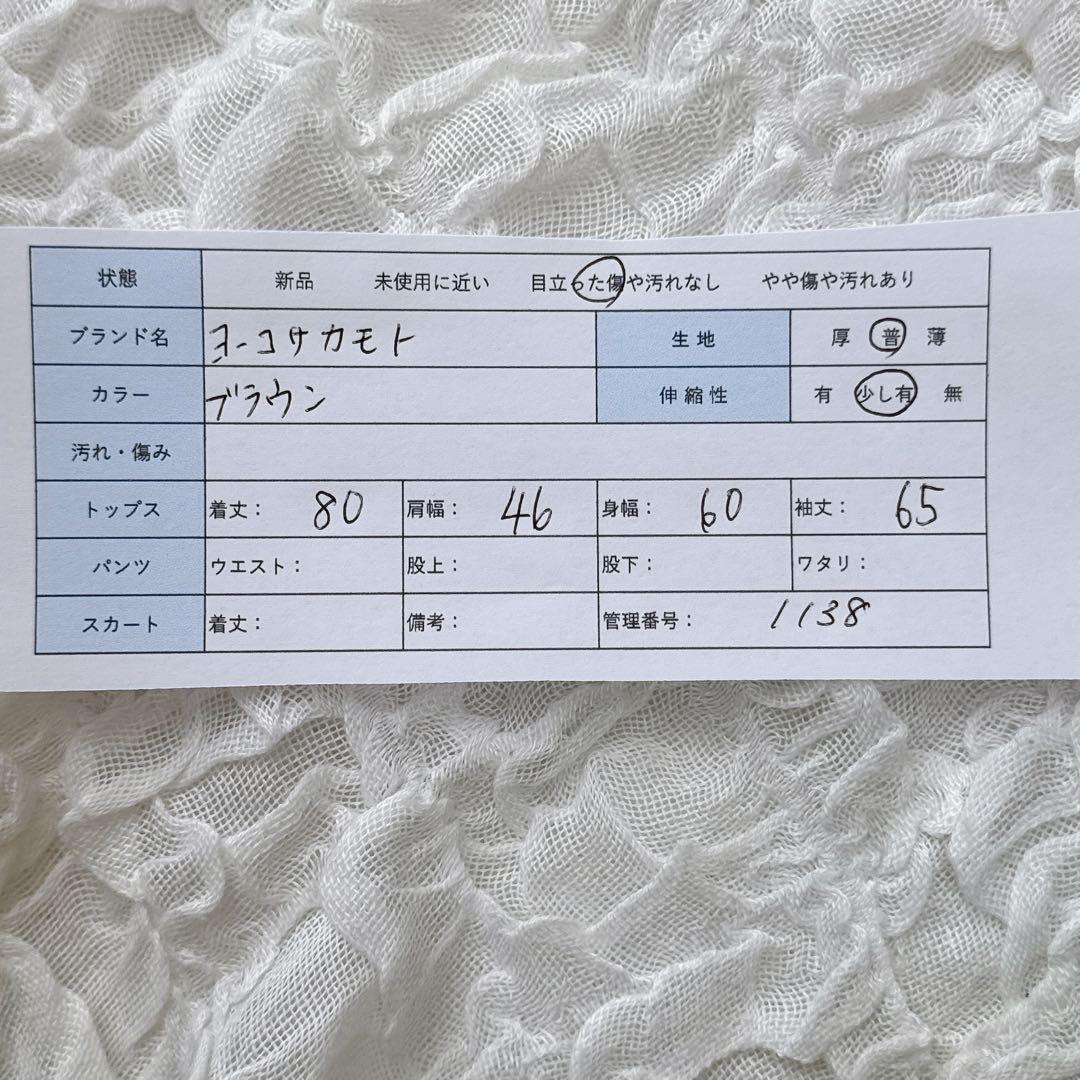 状態 新品 未使用に近い 目立った傷や汚れなし やや傷や汚れあり
ブランド名 ヨーコサカモト 生地 厚 普 薄
カラー ブラウン 伸縮性 有 少し有 無
汚れ・傷み
トップス 着丈： 80 肩幅： 46 身幅： 60 袖丈： 65
パンツ ウエスト： 股上： 股下： ワタリ：
スカート 着丈： 備考： 管理番号： 1138